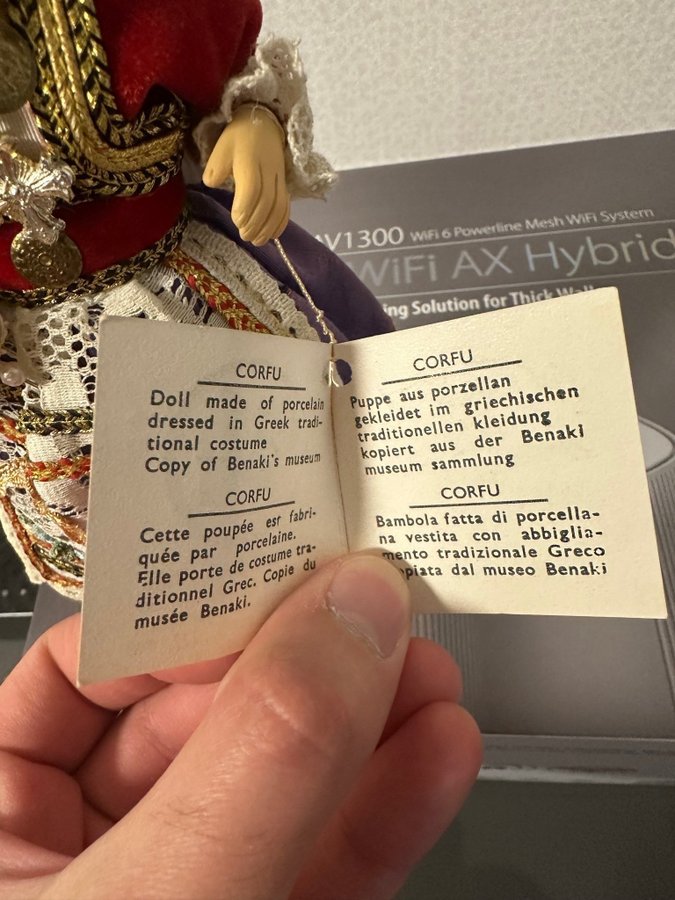 AV1300 WiFi 6 Powerline Mesh WiFi System
WiFi AX Hybrid
Solution for Thick
CORFU
Doll made of porcelain
dressed in Greek tradi-
tional costume
Copy of Benaki's museum
CORFU
Cette poupée est fabri-
quée par porcelaine.
Elle porte de costume tra-
ditionnel Grec. Copie du
musée Benaki.
CORFU
Puppe aus porzellan
gekleidet im griechischen
traditionellen kleidung
kopiert aus der Benaki
museum sammlung
CORFU
Bambola fatta di porcella-
na vestita con abbiglia-
mento tradizionale Greco
dal museo Benaki